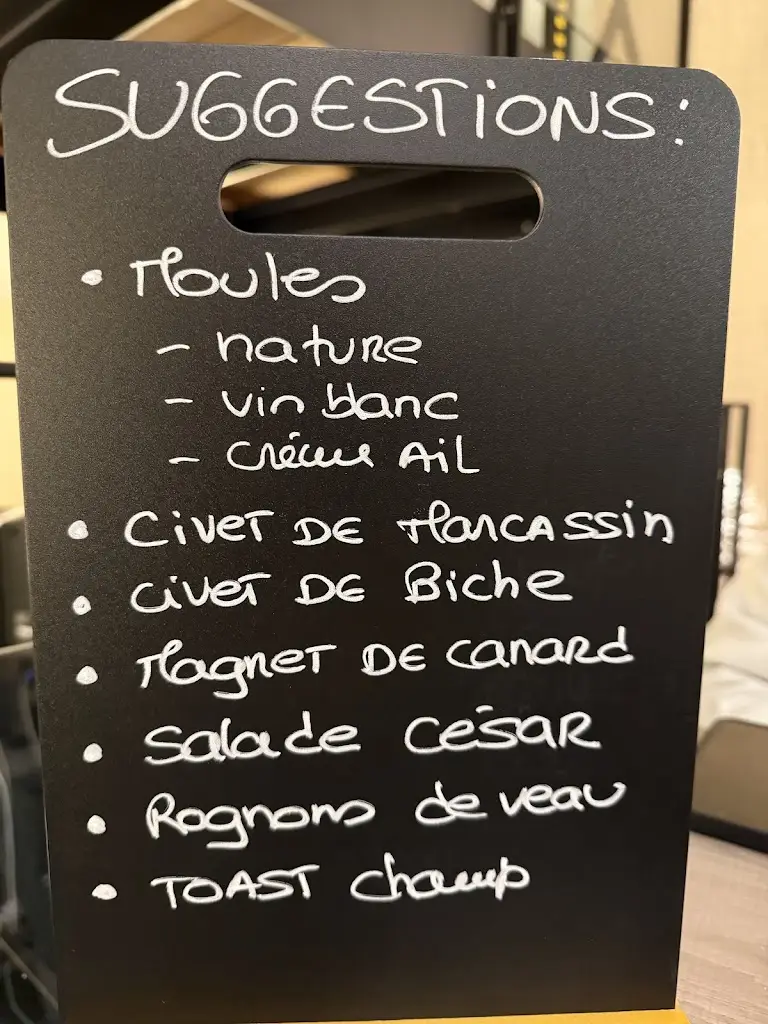 SUGGESTIONS:
• Moules
- nature
- vin blanc
- crème AiL
• Civet DE Marcassin
• civet DE Biche
• Magret DE canard
• Salade CESAR
• Rognons de veau
• TOAST champ